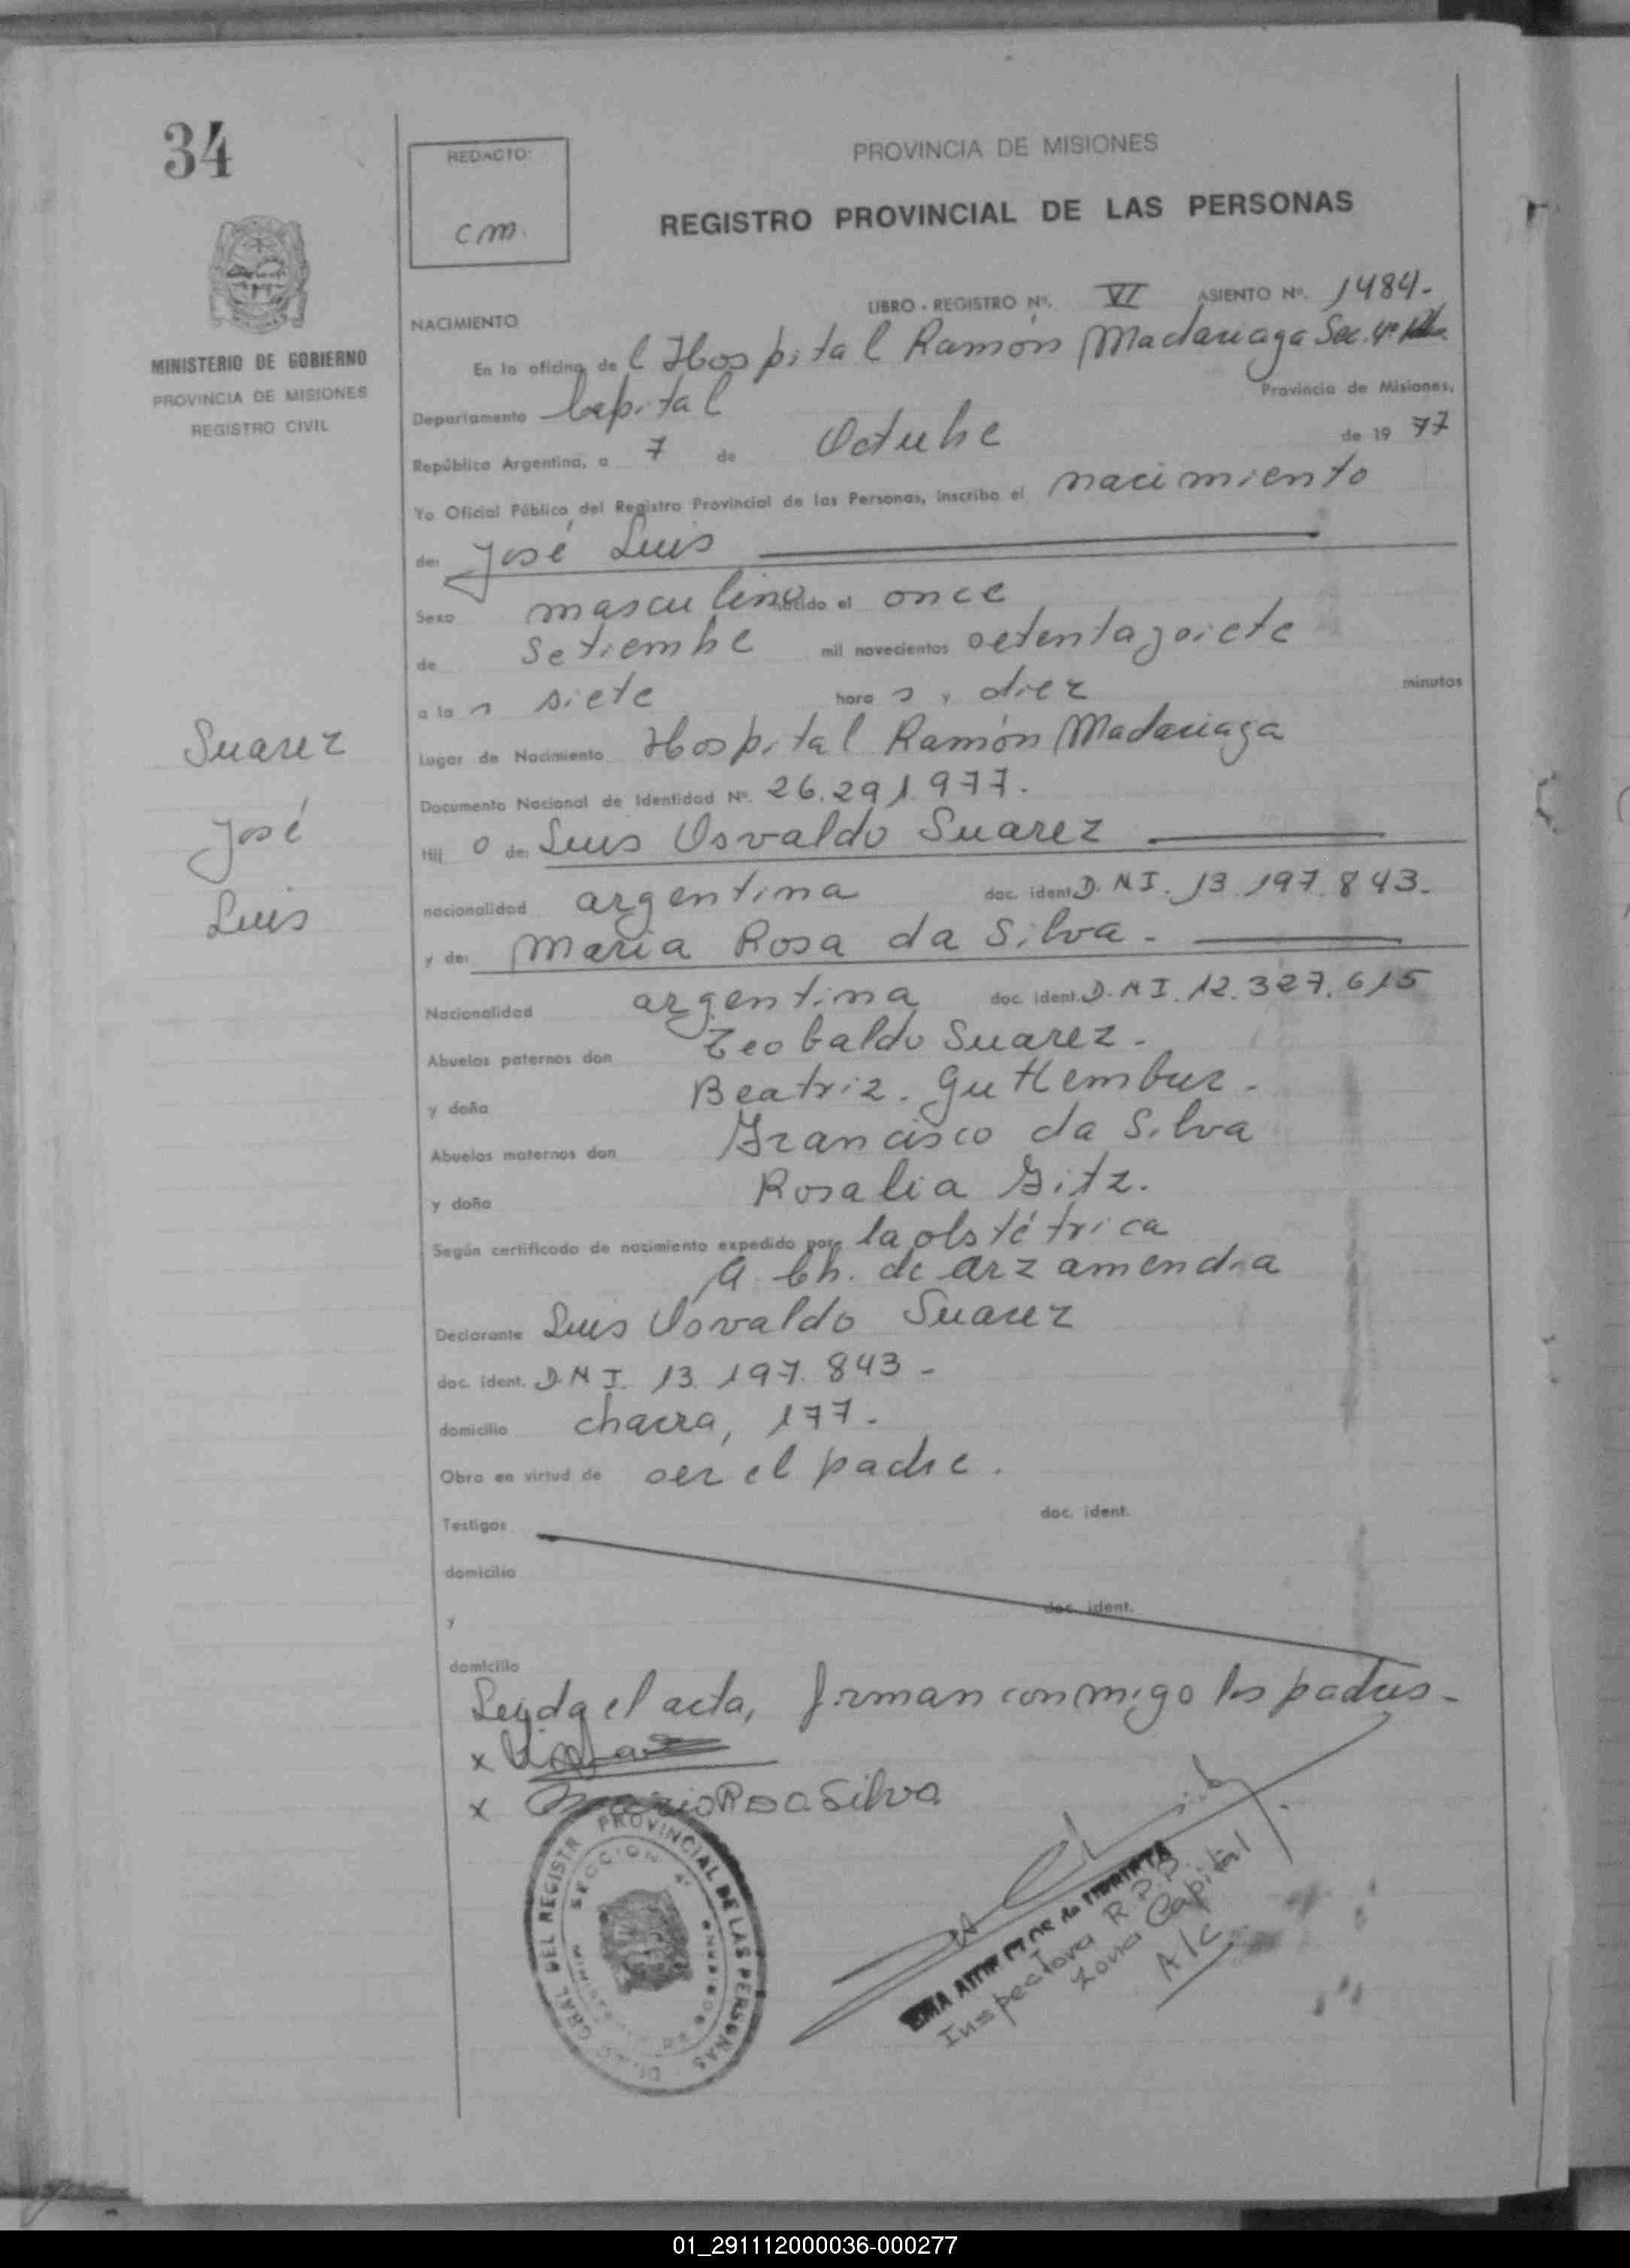 34
REDACTO:
cm.
PROVINCIA DE MISIONES
REGISTRO PROVINCIAL DE LAS PERSONAS
MINISTERIO DE GOBIERNO
PROVINCIA DE MISIONES
REGISTRO CIVIL
LIBRO - REGISTRO Nº. VI ASIENTO Nº. 1484.-
NACIMIENTO
En la oficina de l Hospital Ramón Madariaga Sec. 4ª
Provincia de Misiones,
Departamento Capital
República Argentina, a 7 de Octubre de 19 77
Yo Oficial Público del Registro Provincial de las Personas, inscribo el nacimiento
de: José Luis
Sexo masculino nacido el once
de Setiembre mil novecientos setenta y siete
a la s siete hora s y diez minutos
Lugar de Nacimiento Hospital Ramón Madariaga
Documento Nacional de Identidad Nº. 26.291.977.
Hij o de: Luis Osvaldo Suarez
nacionalidad argentina doc. ident. D.N.I. 13.197.843.
y de: Maria Rosa da Silva.
Nacionalidad argentina doc. ident. D.N.I. 12.327.615
Abuelos paternos don Teobaldo Suarez.
y doña Beatriz. Guttembur.
Abuelos maternos don Francisco da Silva
y doña Rosalia Gitz.
Según certificado de nacimiento expedido por: la obstétrica
A. Ch. de Arzamendia
Declarante Luis Osvaldo Suarez
doc. ident. D.N.I. 13.197.843-
domicilio chacra, 177.
Obra en virtud de ser el padre.
Testigos doc. ident.
domicilio
y doc. ident.
domicilio
Suarez
José
Luis
Leyda el acta, firman conmigo los padres-
x
x Maria R da Silva
DIREC. GRAL DEL REGISTR PROVINCIAL DE LAS PERSONAS
SECCION 4ª
Inspectora R.P.P.
Zona Capital
A/C
01_291112000036-000277